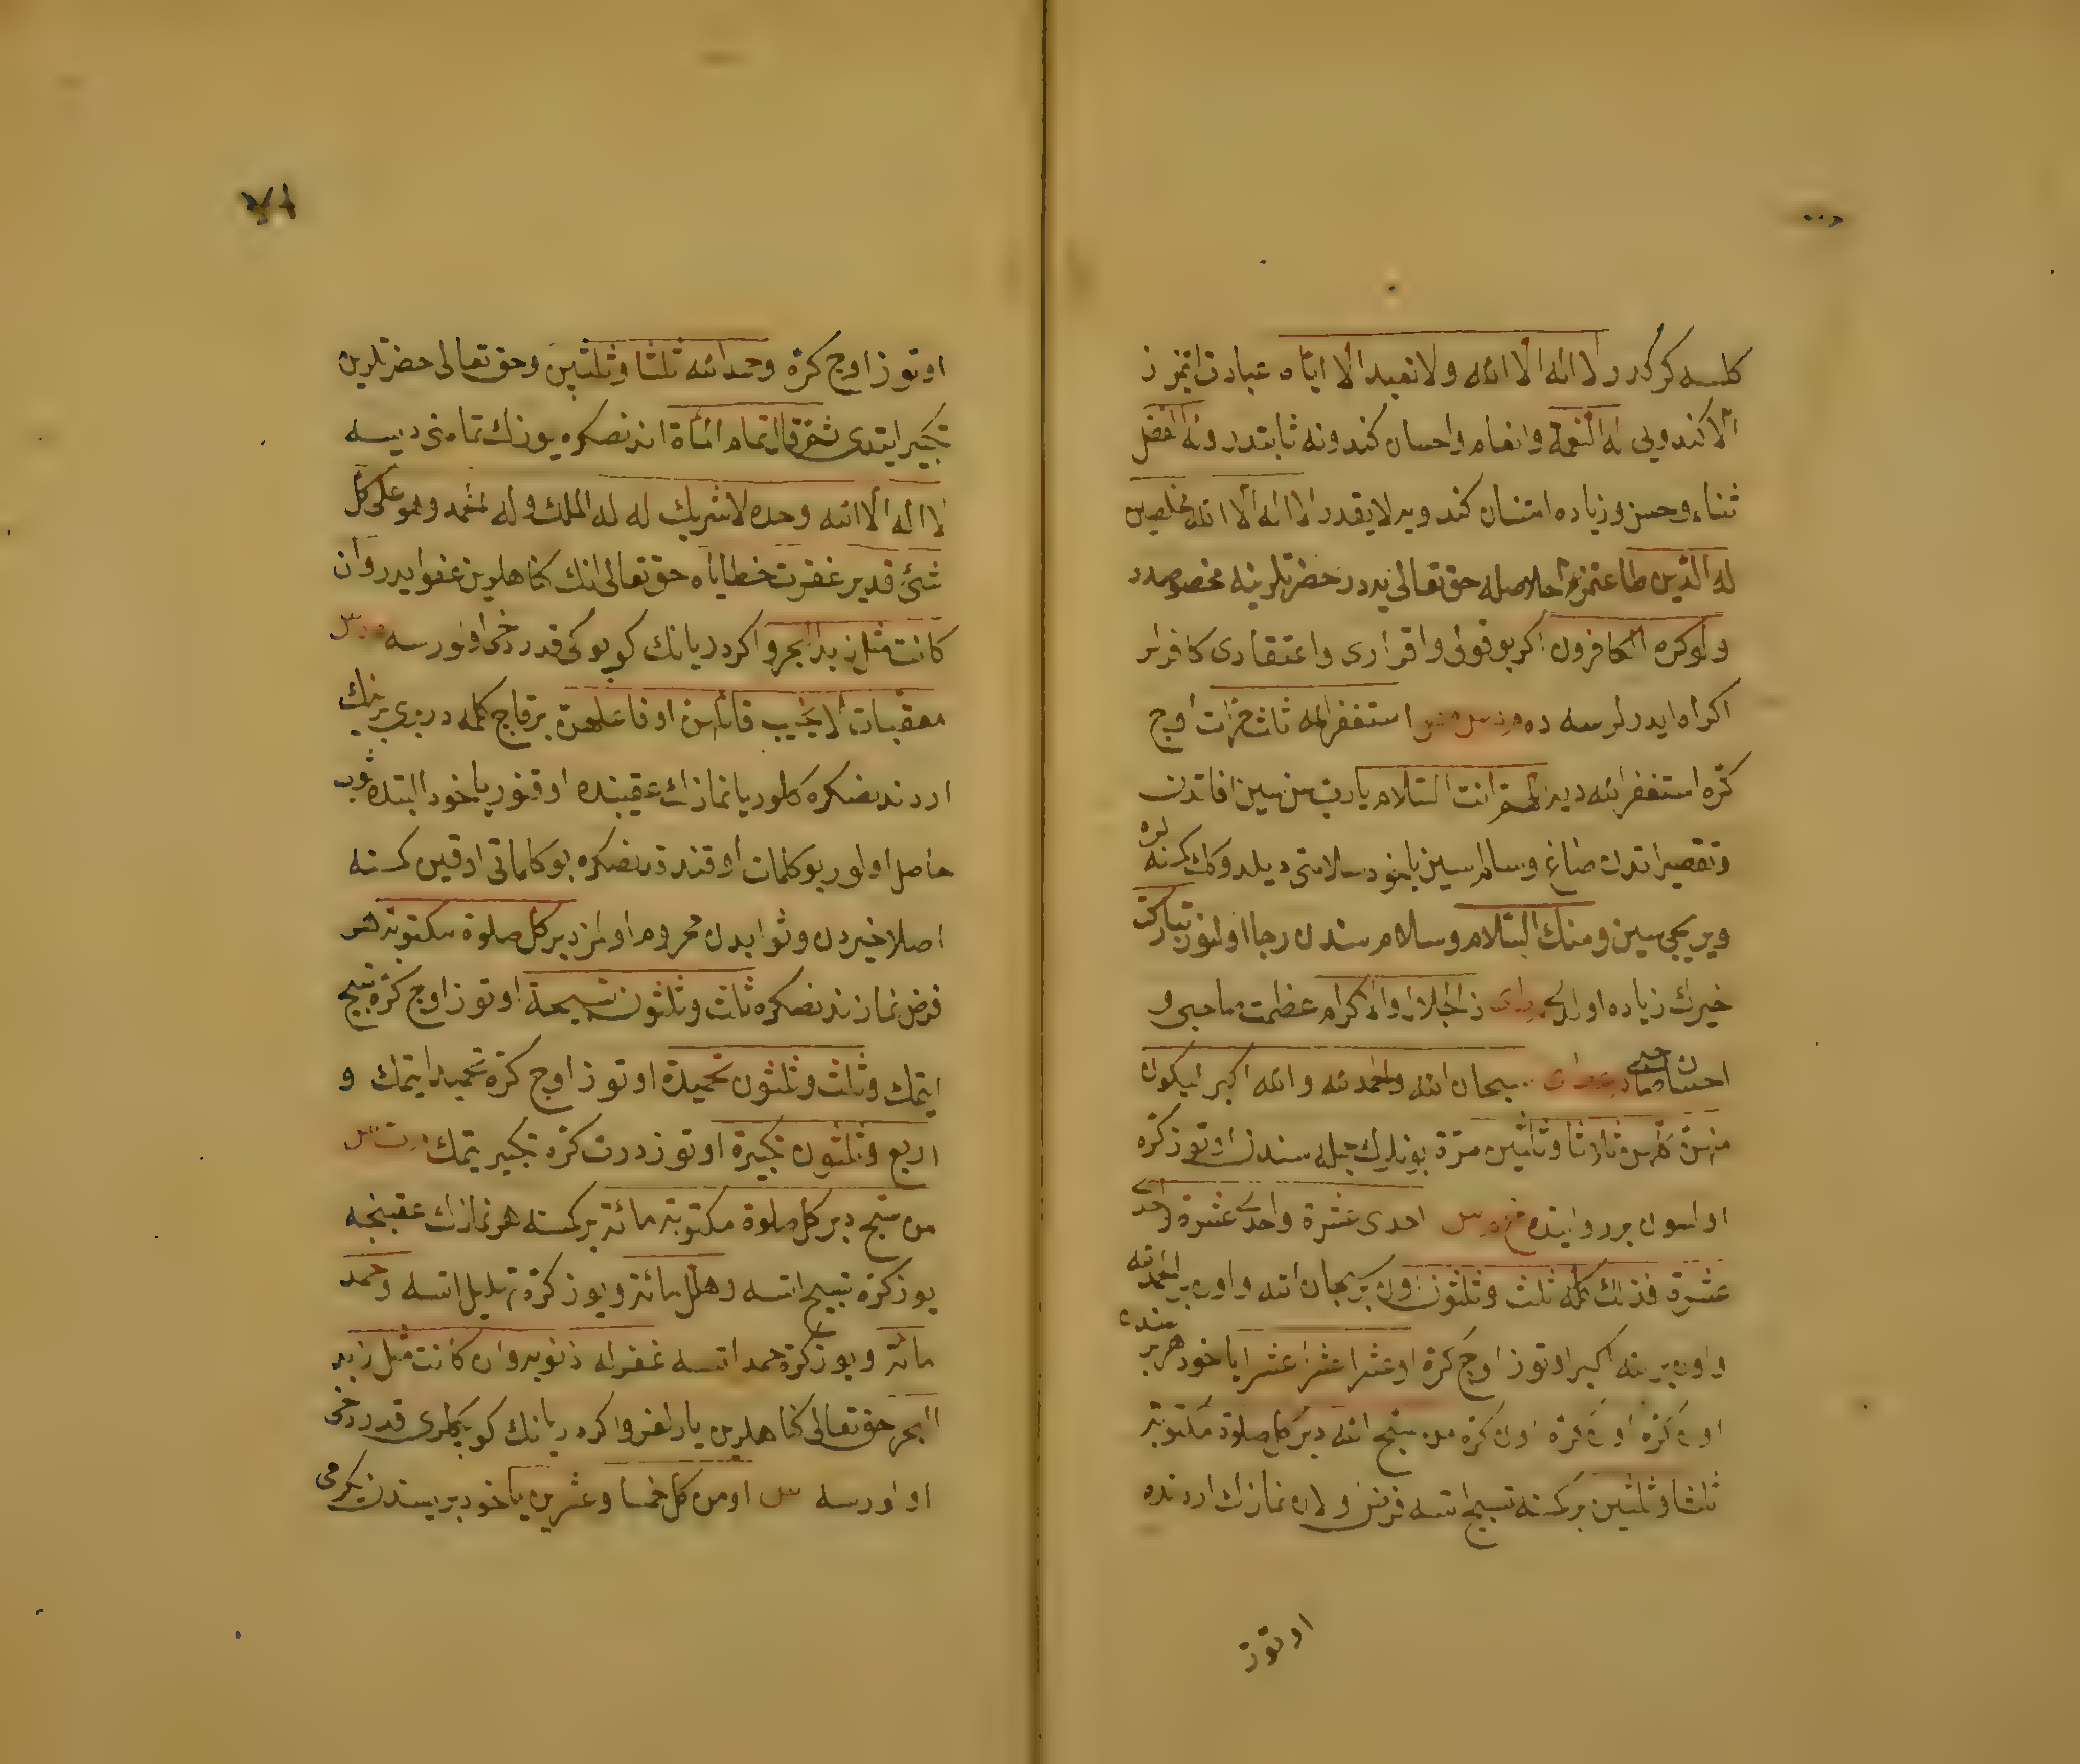 كلمسه كركدر ولا اله الا الله ولا نعبد الا اياه عبادت ايتمزز
الا كندويى له النعمة وانعام واحسان كندونه ثابتدر وله الفضل
ثناء وحسن وزياده امتنان كندويدر لا يقدر لا اله الا الله مخلصين
له الدين طاعتمز اخلاصله حق تعالى حضرتلرينه مخصوصدر
ولو كره الكافرون اكر بو قولى واقرارى واعتقادى كافرلر
اكراه ايدرلرسه ده استغفر الله ثلث مرات اوچ
كره استغفر الله ديه اللهم انت السلام يا رب سن سين افاتدن
وتقصيراتدن صاغ وسالم سين ياخود سلامتى ديلدوكك كمسنه لره
ويريجى سين ومنك السلام وسلام سندن رجا اولنور تباركت
خيرك زياده اولدى ذا الجلال والاكرام عظمت صاحبى و
احسان صاحبى سبحان الله والحمد لله والله اكبر ليكون
منهن كلهن ثلاثا وثلثين مرة بونلرك جمله سندن اوتوز كره
اولسون بر روايتده احدى عشرة واحدى عشرة واحدى
عشرة فذلك كله ثلث وثلثون اون بر سبحان الله واون بر الحمد لله
واون بر الله اكبر اوتوز اوچ كره او عشرا عشرا عشرا ياخود هر بر سنده
اون كره اون كره اون كره من سبح الله دبر كل صلوة مكتوبة
ثلثا وثلثين بر كمسنه تسبيح اتسه فرض اولان نمازك اردنده
اوتوز
اوتوز اوچ كره وحمد الله ثلثا وثلثين وحق تعالى حضرتلرين
تكبير ايتدى ثم قال تمام المأة اندنصكره يوزك تمامنى ديسه
لا اله الا الله وحده لا شريك له له الملك وله الحمد وهو على كل
شئ قدير غفرت خطاياه حق تعالى انك كناهلرين عفو ايدر وان
كانت مثل زبد البحر واكر دريانك كوپوكى قدر دخى اولورسه
معقبات لا يخيب قائلهن او فاعلهن برقاچ كلمه در برى برينك
اردندنصكره كلور يا نمازك عقبنده اوقنور ياخود البته ثواب
حاصل اولور بو كلمات اوقندقدنصكره بو كلماتى اوقين كمسنه
اصلا خيردن وثوابدن محروم اولمز دبر كل صلوة مكتوبة هر
فرض نمازدنصكره ثلث وثلثون تسبيحة اوتوز اوچ كره تسبيح
ايتمك وثلث وثلثون تحميدة اوتوز اوچ كره تحميد ايتمك و
اربع وثلثون تكبيرة اوتوز درت كره تكبير ايتمك
من سبح دبر كل صلوة مكتوبة مائة بر كمسنه هر نمازك عقبنجه
يوز كره تسبيح اتسه وهلل مائة ويوز كره تهليل اتسه وحمد
مائة ويوز كره حمد اتسه غفر له ذنوبه وان كانت مثل زبد
البحر حق تعالى كناهلرين يارلغر واكر دريانك كوپكلرى قدر دخى
اولورسه او من كل خمسا وعشرين ياخود بريسندن يكرمى